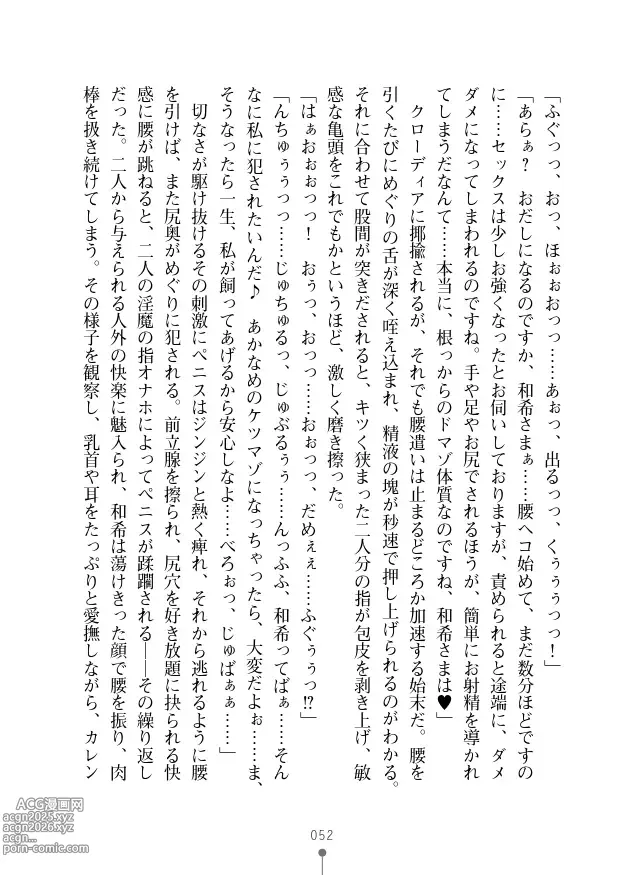 「ふぐっっ、おっ、ほぉぉおっっ……あぉっ、出るっっ、くぅぅぅっっ！」
「あらぁ？　おだしになるのですか、和希さまぁ……腰ヘコ始めて、まだ数分ほどですの
に……セックスは少しお強くなったとお伺いしておりますが、責められると途端に、ダメ
ダメになってしまわれるのですね。手や足やお尻でされるほうが、簡単にお射精を導かれ
てしまうだなんて……本当に、根っからのドマゾ体質なのですね、和希さまは♥」
クローディアに揶揄されるが、それでも腰遣いは止まるどころか加速する始末だ。腰を
引くたびにめぐりの舌が深く咥え込まれ、精液の塊が秒速で押し上げられるのがわかる。
それに合わせて股間が突きだされると、キツく狭まった二人分の指が包皮を剥き上げ、敏
感な亀頭をこれでもかというほど、激しく磨き擦った。
「はぁおぉぉっっ！　おぅっ、おっっ……おぉっっ、だめぇぇ……ふぐぅぅっ!?」
「んちゅぅぅっっ……じゅちゅるっ、じゅぶるぅぅ……んっふふ、和希ってばぁ……そん
なに私に犯されたいんだ♪　あかなめのケツマゾになっちゃったら、大変だよぉ……ま、
そうなったら一生、私が飼ってあげるから安心しなよ……べろぉっ、じゅばぁぁ……」
切なさが駆け抜けるその刺激にペニスはジンジンと熱く痺れ、それから逃れるように腰
を引けば、また尻奥がめぐりに犯される。前立腺を擦られ、尻穴を好き放題に抉られる快
感に腰が跳ねると、二人の淫魔の指オナホによってペニスが蹂躙される――その繰り返し
だった。二人から与えられる人外の快楽に魅入られ、和希は蕩けきった顔で腰を振り、肉
棒を扱き続けてしまう。その様子を観察し、乳首や耳をたっぷりと愛撫しながら、カレン
052
ACG漫画网
acgn2025.xyz
acgn2026.xyz
acgn...
porn-comic.com/